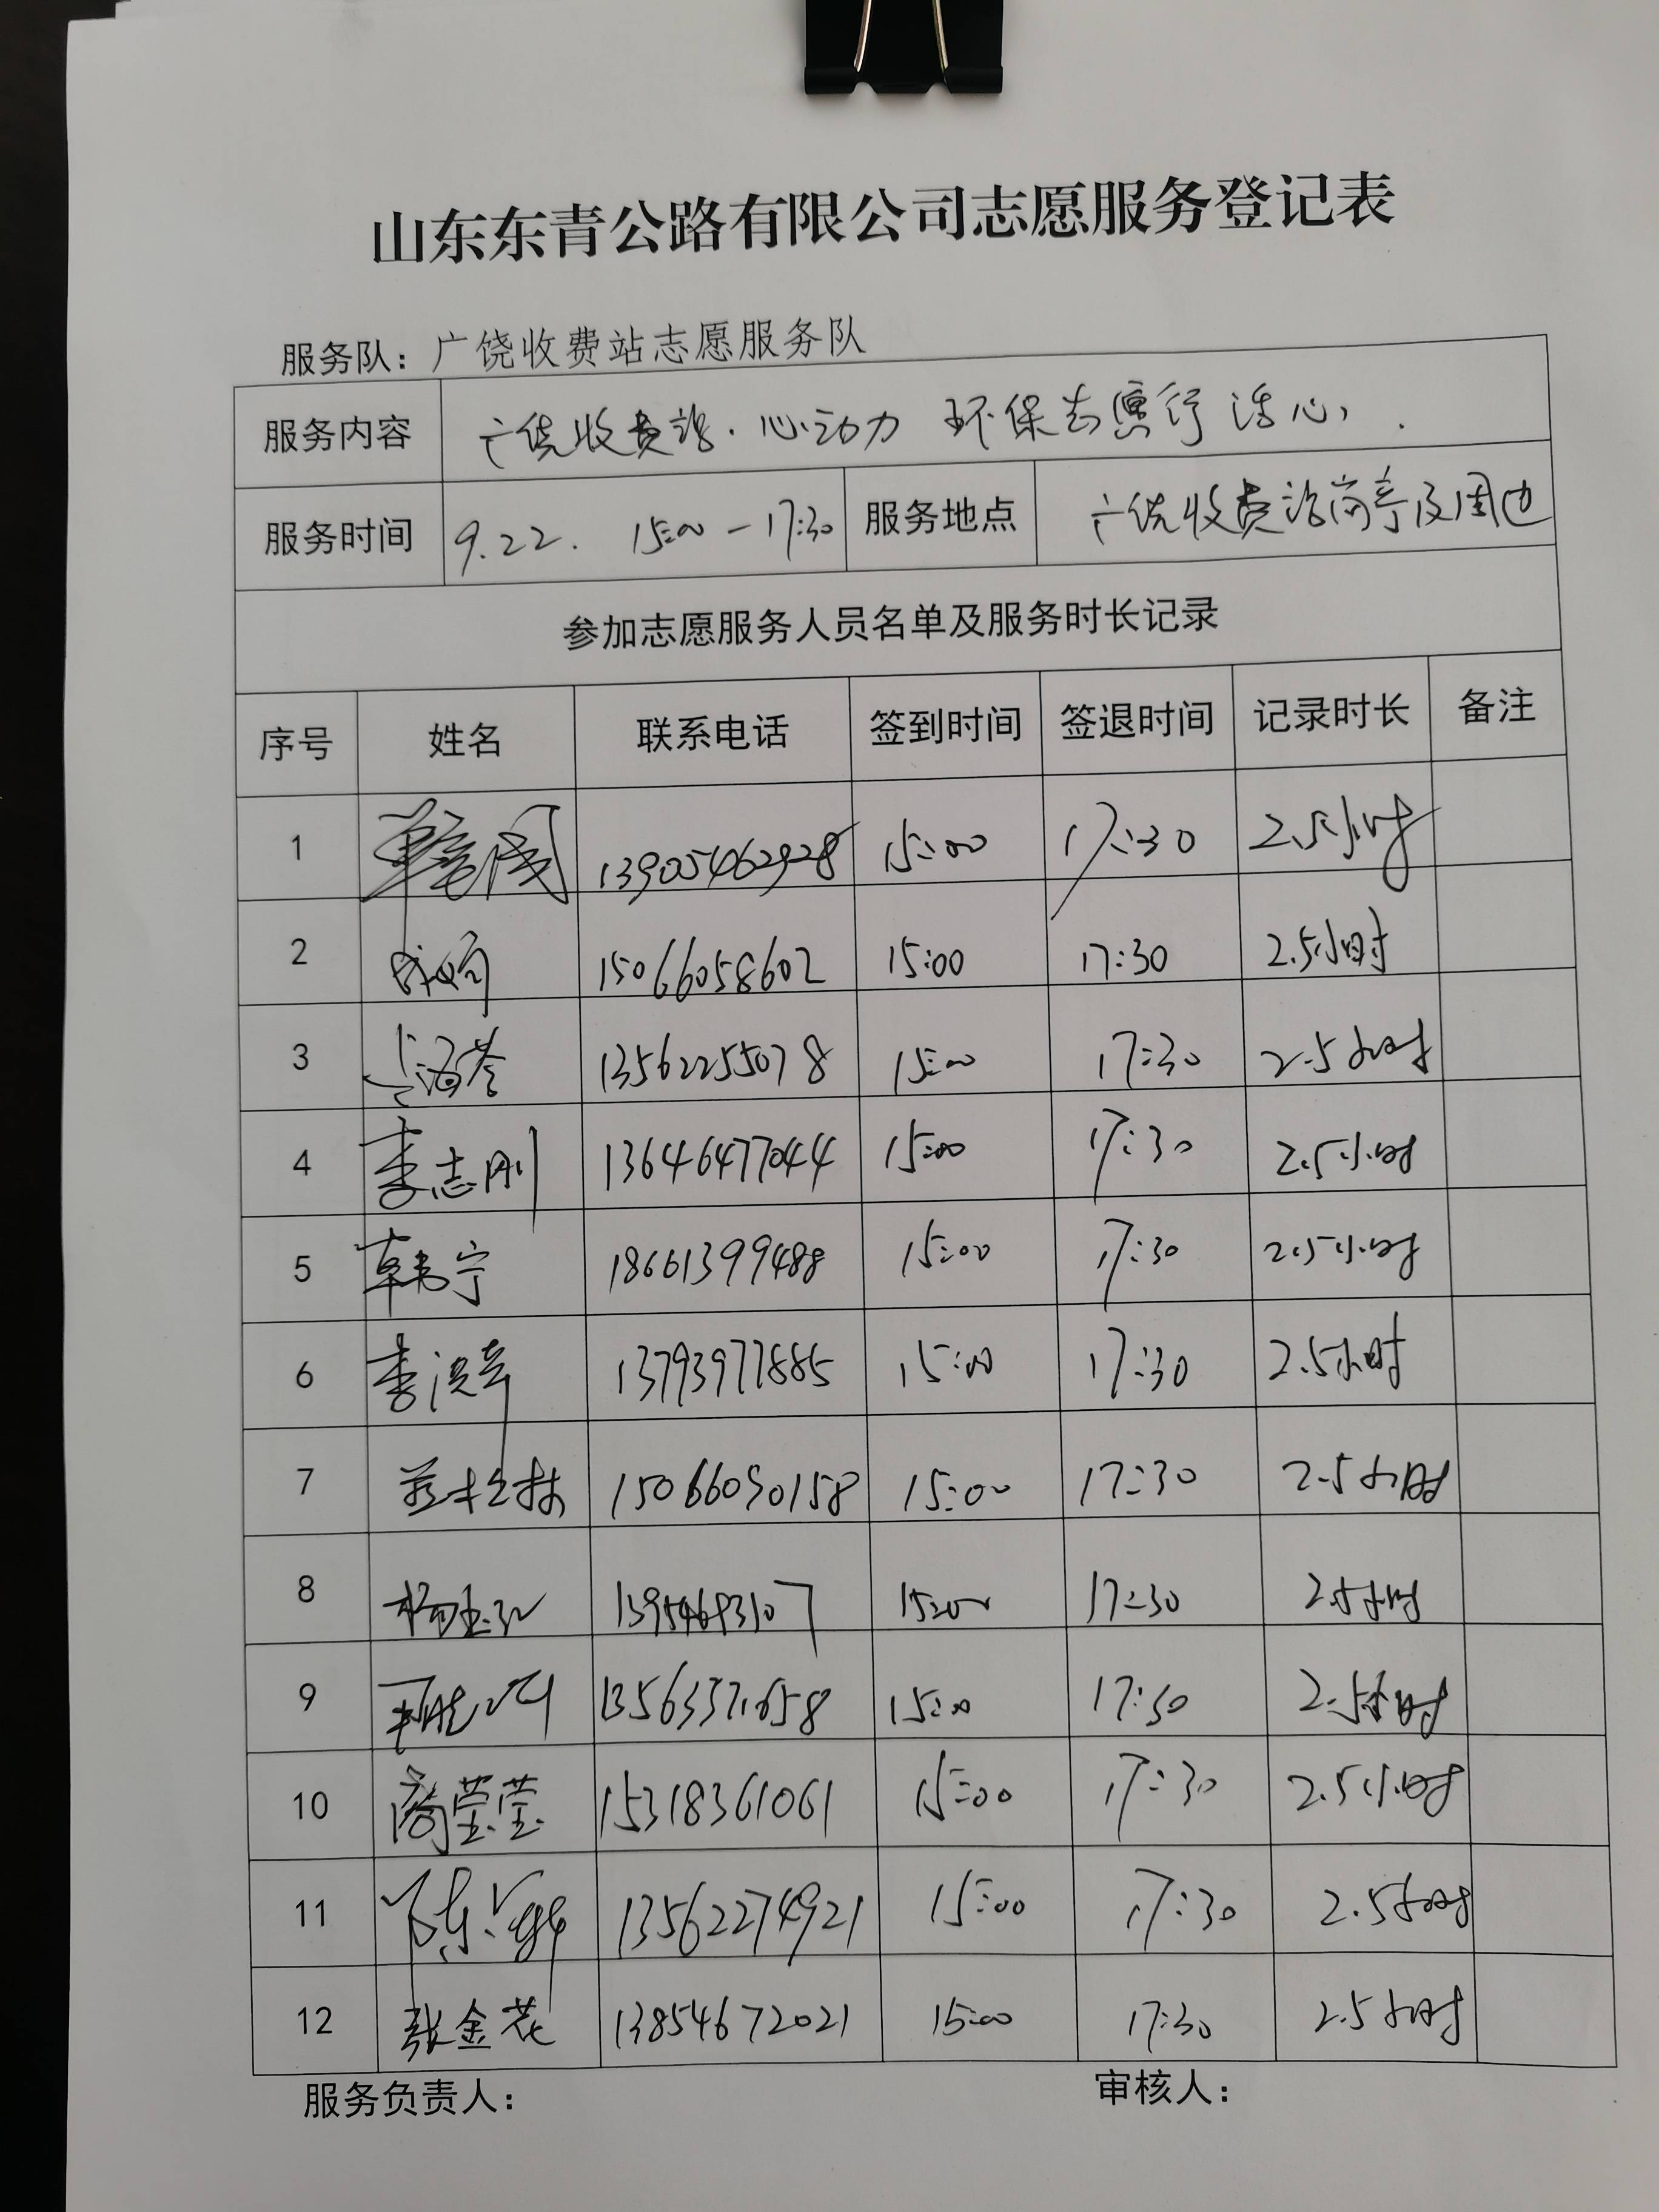 山东东青公路有限公司志愿服务登记表
服务队：广饶收费站志愿服务队
服务内容 广饶收费站·心动力 环保志愿行活动
服务时间 9.22. 15:00-17:30 服务地点 广饶收费站岗亭及周边
参加志愿服务人员名单及服务时长记录
序号 姓名 联系电话 签到时间 签退时间 记录时长 备注
1 13905462928 15:00 17:30 2.5小时
2 15066058602 15:00 17:30 2.5小时
3 13562255078 15:00 17:30 2.5小时
4 李志刚 13646477044 15:00 17:30 2.5小时
5 韩宁 18661399488 15:00 17:30 2.5小时
6 13793977885 15:00 17:30 2.5小时
7 15066090158 15:00 17:30 2.5小时
8 15:00 17:30 2.5小时
9 15:00 17:30 2.5小时
10 商莹莹 15318361061 15:00 17:30 2.5小时
11 13562274921 15:00 17:30 2.5小时
12 张金花 13854672021 15:00 17:30 2.5小时
服务负责人： 审核人：